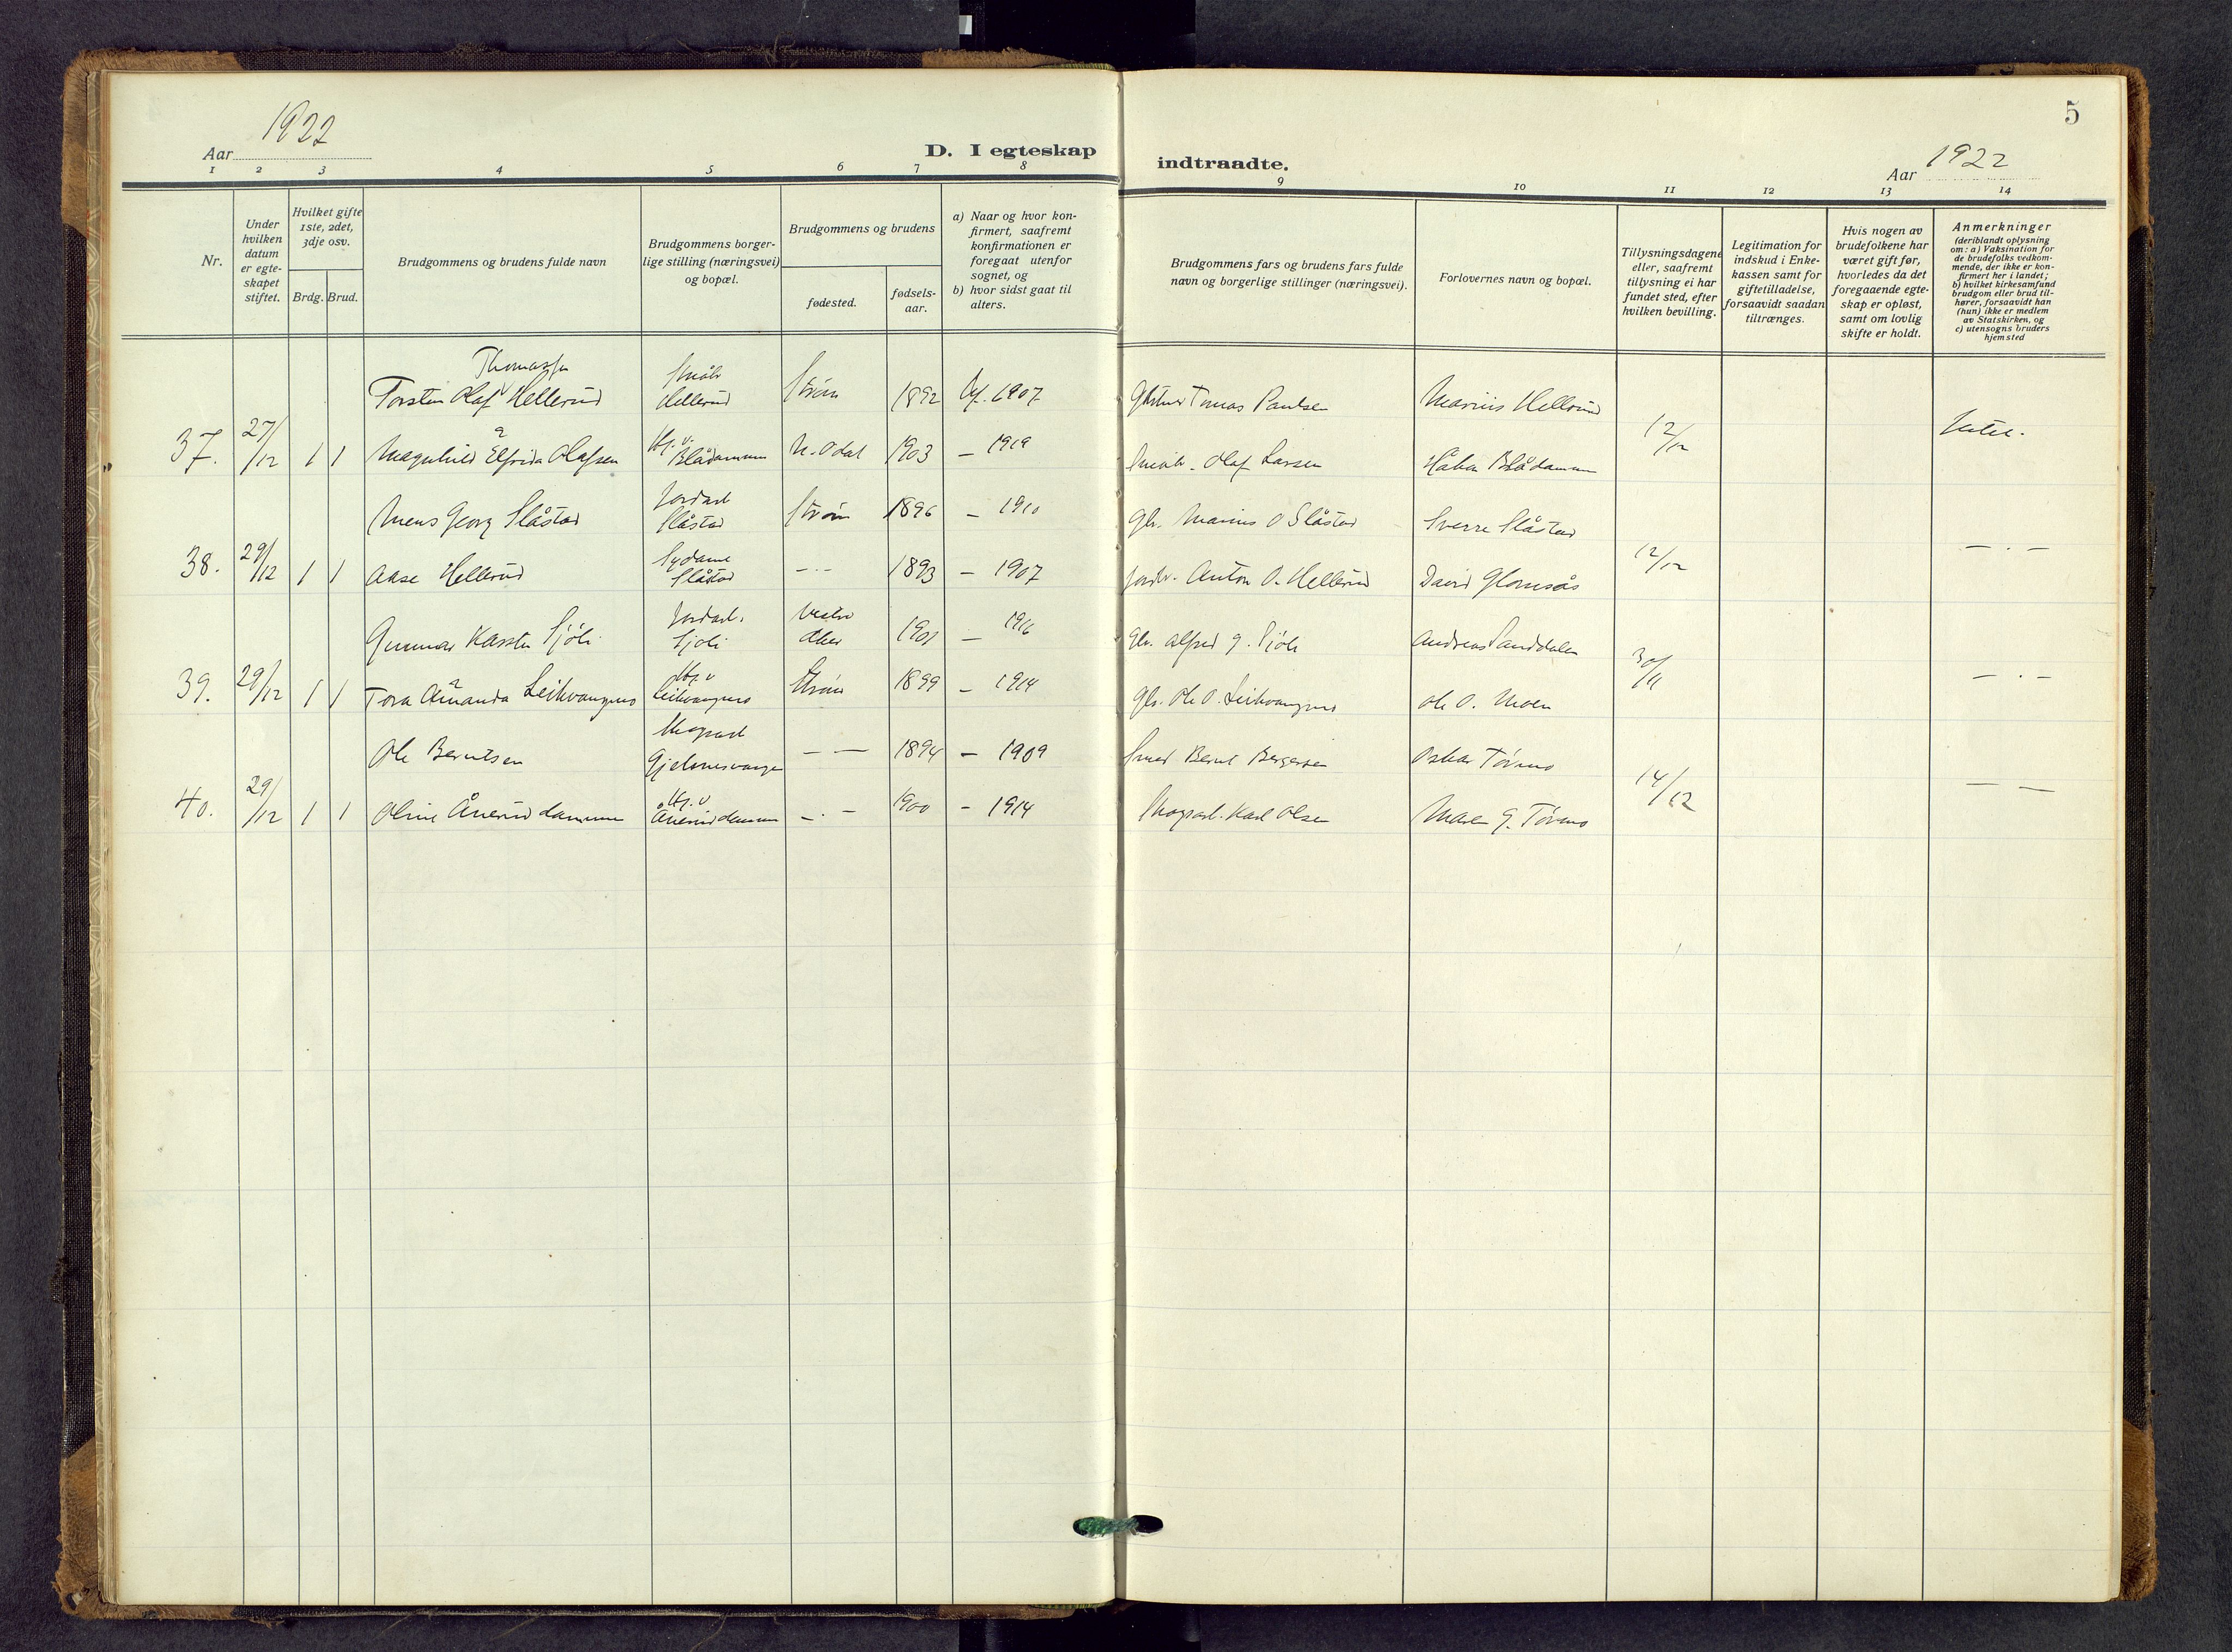 1922
Aar
D. I egteskap
1 2 3 4 5 6 7 8
Nr.
Under hvilken datum er egte-skapet stiftet.
Hvilket gifte 1ste, 2det, 3dje osv.
Brdg. Brud.
Brudgommens og brudens fulde navn
Brudgommens borger-lige stilling (næringsvei) og bopæl.
Brudgommens og brudens
fødested.
fødsels-aar.
a) Naar og hvor kon-firmert, saafremt konfirmationen er foregaat utenfor sognet, og
b) hvor sidst gaat til alters.
Thomassen
Torsten Olaf Hellerud
Hellerud
Strøm 1892 1907
37. 27/12 1 1 Magnhild Elfrida Olafsen
Blådammen N. Odal 1903 – 1919
Mens Georg Slåstad
Slåstad Strøm 1896 – 1910
38. 29/12 1 1 Aase Hellerud
Sydame Slåstad –·– 1893 – 1907
Gunnar Karsten Sjøli
Jordarb. Sjøli Vestre Aker 1901 – 1916
39. 29/12 1 1 Tora Amanda Leikvangmo
Hj. v. Leikvangmo Strøm 1899 – 1914
Ole Berntsen
Skogsarb – — 1894 – 1909
40. 29/12 1 1 Oline Ånerud dammen
Hj. v Ånerud dammen –·– 1900 – 1914
5
indtraadte.
Aar 1922
9 10 11 12 13 14
Brudgommens fars og brudens fars fulde navn og borgerlige stillinger (næringsvei).
Forlovernes navn og bopæl.
Tillysningsdagene eller, saafremt tillysning ei har fundet sted, efter hvilken bevilling.
Legitimation for indskud i Enke-kassen samt for giftetilladelse, forsaavidt saadan tiltrænges.
Hvis nogen av brudefolkene har været gift før, hvorledes da det foregaaende egte-skap er opløst, samt om lovlig skifte er holdt.
Anmerkninger
(deriblandt oplysning om: a) Vaksination for de brudefolks vedkom-mende, der ikke er kon-firmert her i landet;
b) hvilket kirkesamfund brudgom eller brud til-hører, forsaavidt han (hun) ikke er medlem av Statskirken, og
c) utensogns bruders hjemsted
Tomas Paulsen Marius Hellerud
12/12
Olaf Larsen Håkon Blådammen
Gbr. Marius O Slåstad Sverre Slåstad
12/12 –·–
Anton O. Hellerud David Glomsås
Gbr. Alfred G. Sjøli Andreas Sanddalen
30/11 –·–
Gbr. Ole O. Leikvangmo Ole O. Moen
Smed Bernt Bergersen Oskar Tørmo
14/12 – –
Skogsarb. Karl Olsen Maren G. Tørmo